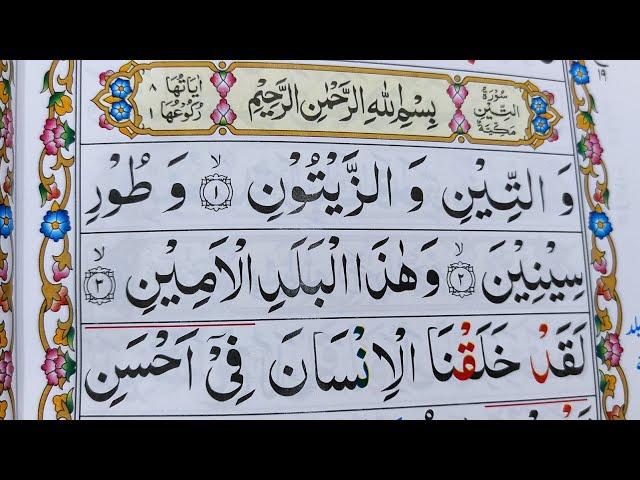 سُوْرَةُ التِّيْنِ مَكِّيَّةٌ
بِسْمِ اللهِ الرَّحْمٰنِ الرَّحِيْمِ
اٰيَاتُهَا ٨
رُكُوْعُهَا ١
وَ التِّيْنِ وَ الزَّيْتُوْنِ ۙ‏ ١ وَ طُوْرِ
سِيْنِيْنَ ۙ‏ ٢ وَهٰذَا الْبَلَدِ الْاَمِيْنِ ۙ‏ ٣
لَقَدْ خَلَقْنَا الْاِنْسَانَ فِيْۤ اَحْسَنِ
١٩